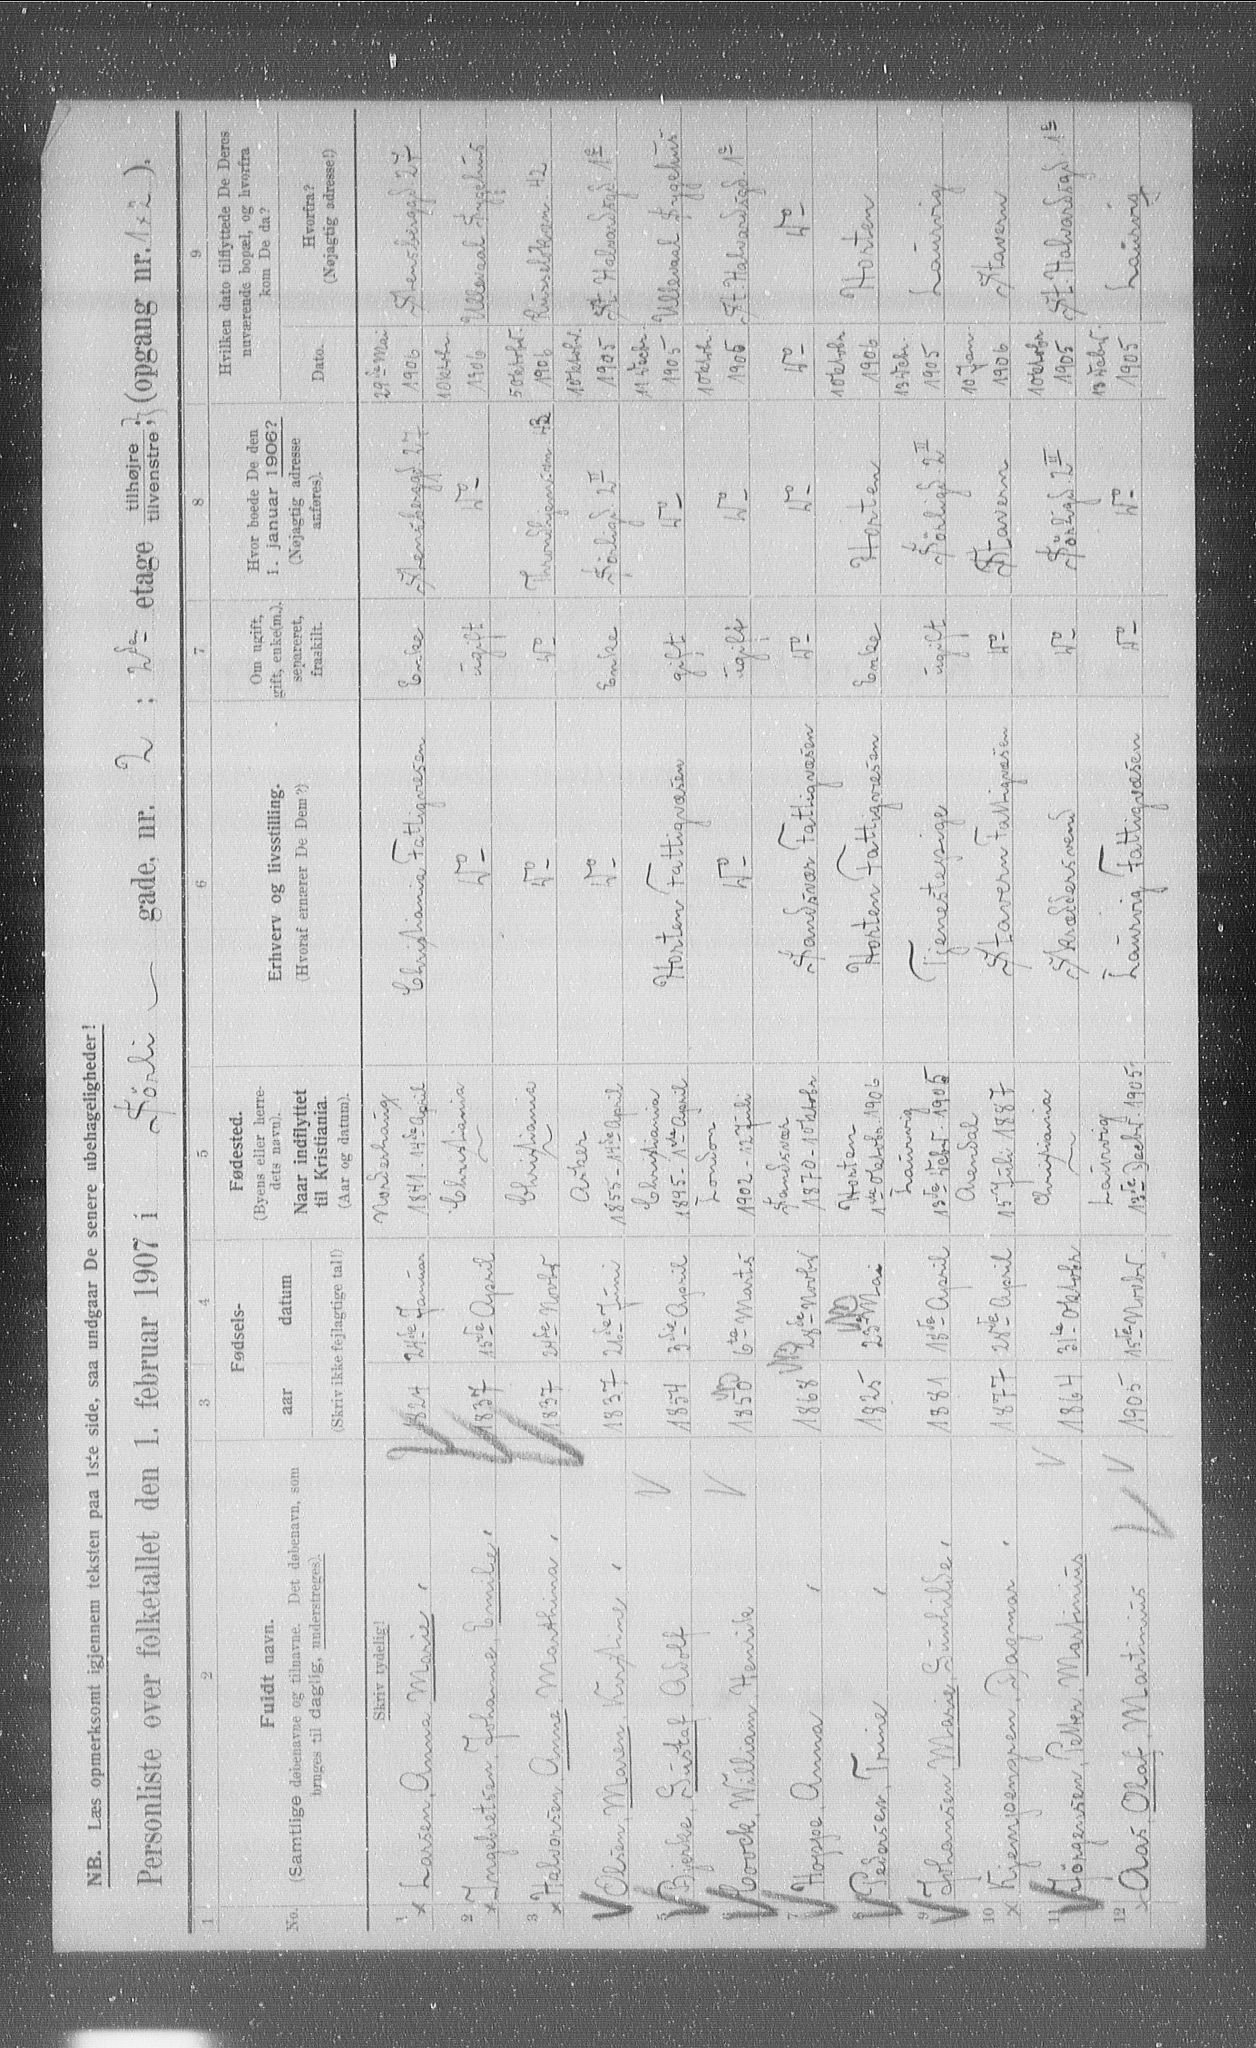 NB. Læs opmerksomt igjennem teksten paa 1ste side, saa undgaar De senere ubehageligheder!
Personliste over folketallet den 1. februar 1907 i Sörli gade, nr. 2 ; 2de etage tilhøjre tilvenstre, (opgang nr. 1 x 2 ).
1 2 3 4 5 6 7 8 9
No.
Fuldt navn.
(Samtlige døbenavne og tilnavne. Det døbenavn, som
bruges til daglig, understreges).
Fødsels-
aar datum
(Skriv ikke fejlagtige tal!)
Fødested.
(Byens eller herre-
dets navn).
Naar indflyttet
til Kristiania.
(Aar og datum).
Erhverv og livsstilling.
(Hvoraf ernærer De Dem?)
Om ugift,
gift, enke(m.),
separeret,
fraskilt.
Hvor boede De den
1. januar 1906?
(Nøjagtig adresse
anføres).
Hvilken dato tilflyttede De Deres
nuværende bopæl, og hvorfra
kom De da?
Dato.
Hvorfra?
(Nøjagtig adresse!)
Skriv tydelig!
1 x Larsen, Anna Marie, 1824 24de Januar Norderhaug 1841 - 14de April Christiania Fattigvæsen Enke Stensberggd 27 29de Mai 1906 Stensberggd 27
2 x Ingebretsen, Johanne, Emilie, 1837 15de April Christiania Do ugift Do 1 Oktobr. 1906 Ullevaal Sygehus
3 x Halvorsen, Anne, Marthina, 1837 24de Novbr Christiania Do Do Throndhjemsvn 42 5 Oktobr. 1906 Russeløkvn. 42
Olsen, Maren, Kirstine, 1837 26de Juni Asker 1855 - 14de April Do Enke Sörligd 2 II 1 Oktobr. 1905 St. Halvardsgd. 1e
5 Bjerke, Gustaf, Adolf 1854 3die April Christiania 1895 - 1ste April Horten Fattigvæsen gift Do 11 Decbr. 1905 Ullevaal Sygehus
6 Coock, William, Henrik 1850 6te Marts London 1902 - 12 Juli Do ugift Do 1 Oktobr. 1905 St. Halvardsgd. 1e
7 Hoppe, Anna, 1868 28de Novbr Sandsvær 1870 - 1 Oktobr Sandsvær Fattigvæsen Do Do Do Do
8 Pedersen, Trine, 1825 23de Mai Horten 1ste Oktobr. 1906 Horten Fattigvæsen Enke Horten 1 Oktobr 1906 Horten
9 Johansen, Marie, Gunhilde, 1881 18de April Laurvig 13de Decbr. 1905 Tjenestepige ugift Sörligd 2 II 13 Decbr. 1905 Laurvig
10 x Kjempengen, Dagmar, 1877 28de April Arendal 15 Juli 1887 Stavern Fattigvæsen Do Stavern 10 Jan. 1906 Stavern
11 Jörgensen, Petter, Martinius 1864 31te Oktobr Christiania Skræddersvend Do Sörligd. 2 II 1 Oktobr 1905 St. Halvardsgd. 1e
12 x Aas, Olaf, Martinius 1905 15de Novbr. Laurvig 13de Decbr 1905 Laurvig Fattigvæsen Do Do 13 Decbr. 1905 Laurvig